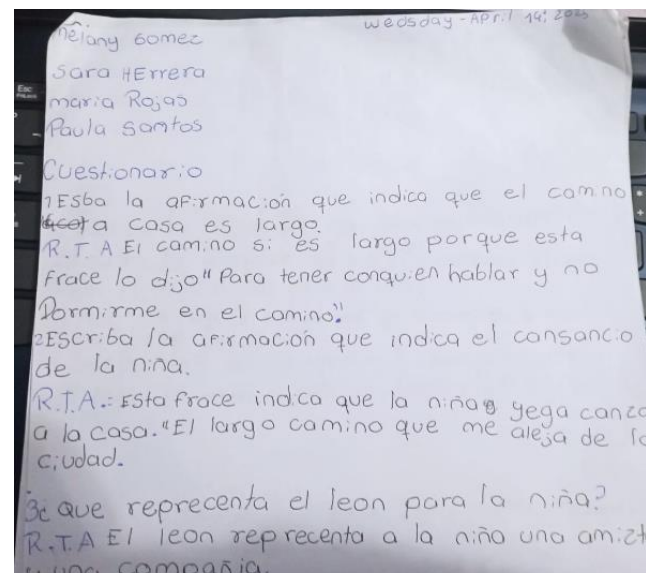 Melany Gomez
Wedsday - April 14; 2023
Sara HErrera
maria Rojas
Paula Santos
Cuestionario
1 Esba la aFirmación que indica que el camino
a casa es largo.
R.T.A El camino si es largo porque esta
Frace lo dijo "Para tener conquien hablar y no
Dormirme en el camino".
2 EScriba la aFirmación que indica el cansancio
de la niña.
R.T.A.: Esta frace indica que la niña yega
a la casa. "El largo camino que me aleja de
ciudad.
3¿ que reprecenta el leon para la niña?
R.T.A El leon reprecenta a la niña una
una compañia.